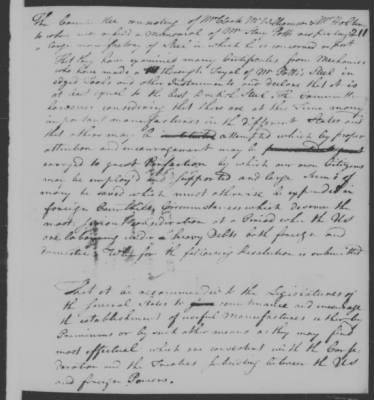 The Committee consisting of Mr Clark Mr Williamson & Mr
to whom was referred a Memorial of Mr Hay Potts respecting 211
a large manufactory of Steel in which he is concerned report
That they have examined many Certificates from Mechanics
who have made a thorough Tryal of Mr Potts's Steel in
edged Tools and other Instruments and declare that it is
at least equal to the best Steel The Committee
however considering that there are at this time many
important manufactures in the different States and
that others may be attempted which by proper
attention and encouragement may be
carryed to great Perfection by which our own Citizens
may be employed and supported and large Sums of
money be saved which must otherwise be expended in
foreign Countries Circumstances which deserve the
most serious Consideration at a Period when the US
are labouring under a heavy Debt both foreign and
domestic for the following Resolution is submitted
That it be recommended to the Legislatures of
the several States to countenance and encourage
the establishment of useful Manufactures either by
Premiums or by such other means as they may find
most effectual which are consistent with the Confe-
deration and the Treaties subsisting between the US
and foreign Powers.